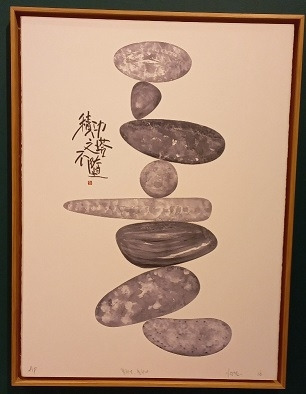 積功
之塔
不墮
AP